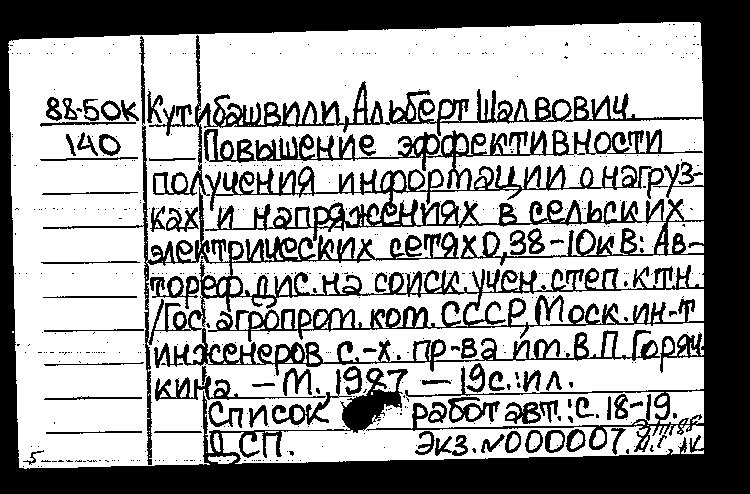 88-50К Кутибашвили, Альберт Шалвович.
140 Повышение эффективности
получения информации о нагруз-
ках и напряжениях в сельских
электрических сетях 0,38-10кВ: Ав-
тореф. дис. на соиск. учен. степ. к.т.н.
/Гос. агропром. ком. СССР, Моск. ин-т
инженеров с.-х. пр-ва им. В.П. Горяч-
кина. — М., 1987. — 19с.: ил.
Список работ авт.: с. 18-19.
ДСП. Экз. №000007.
5